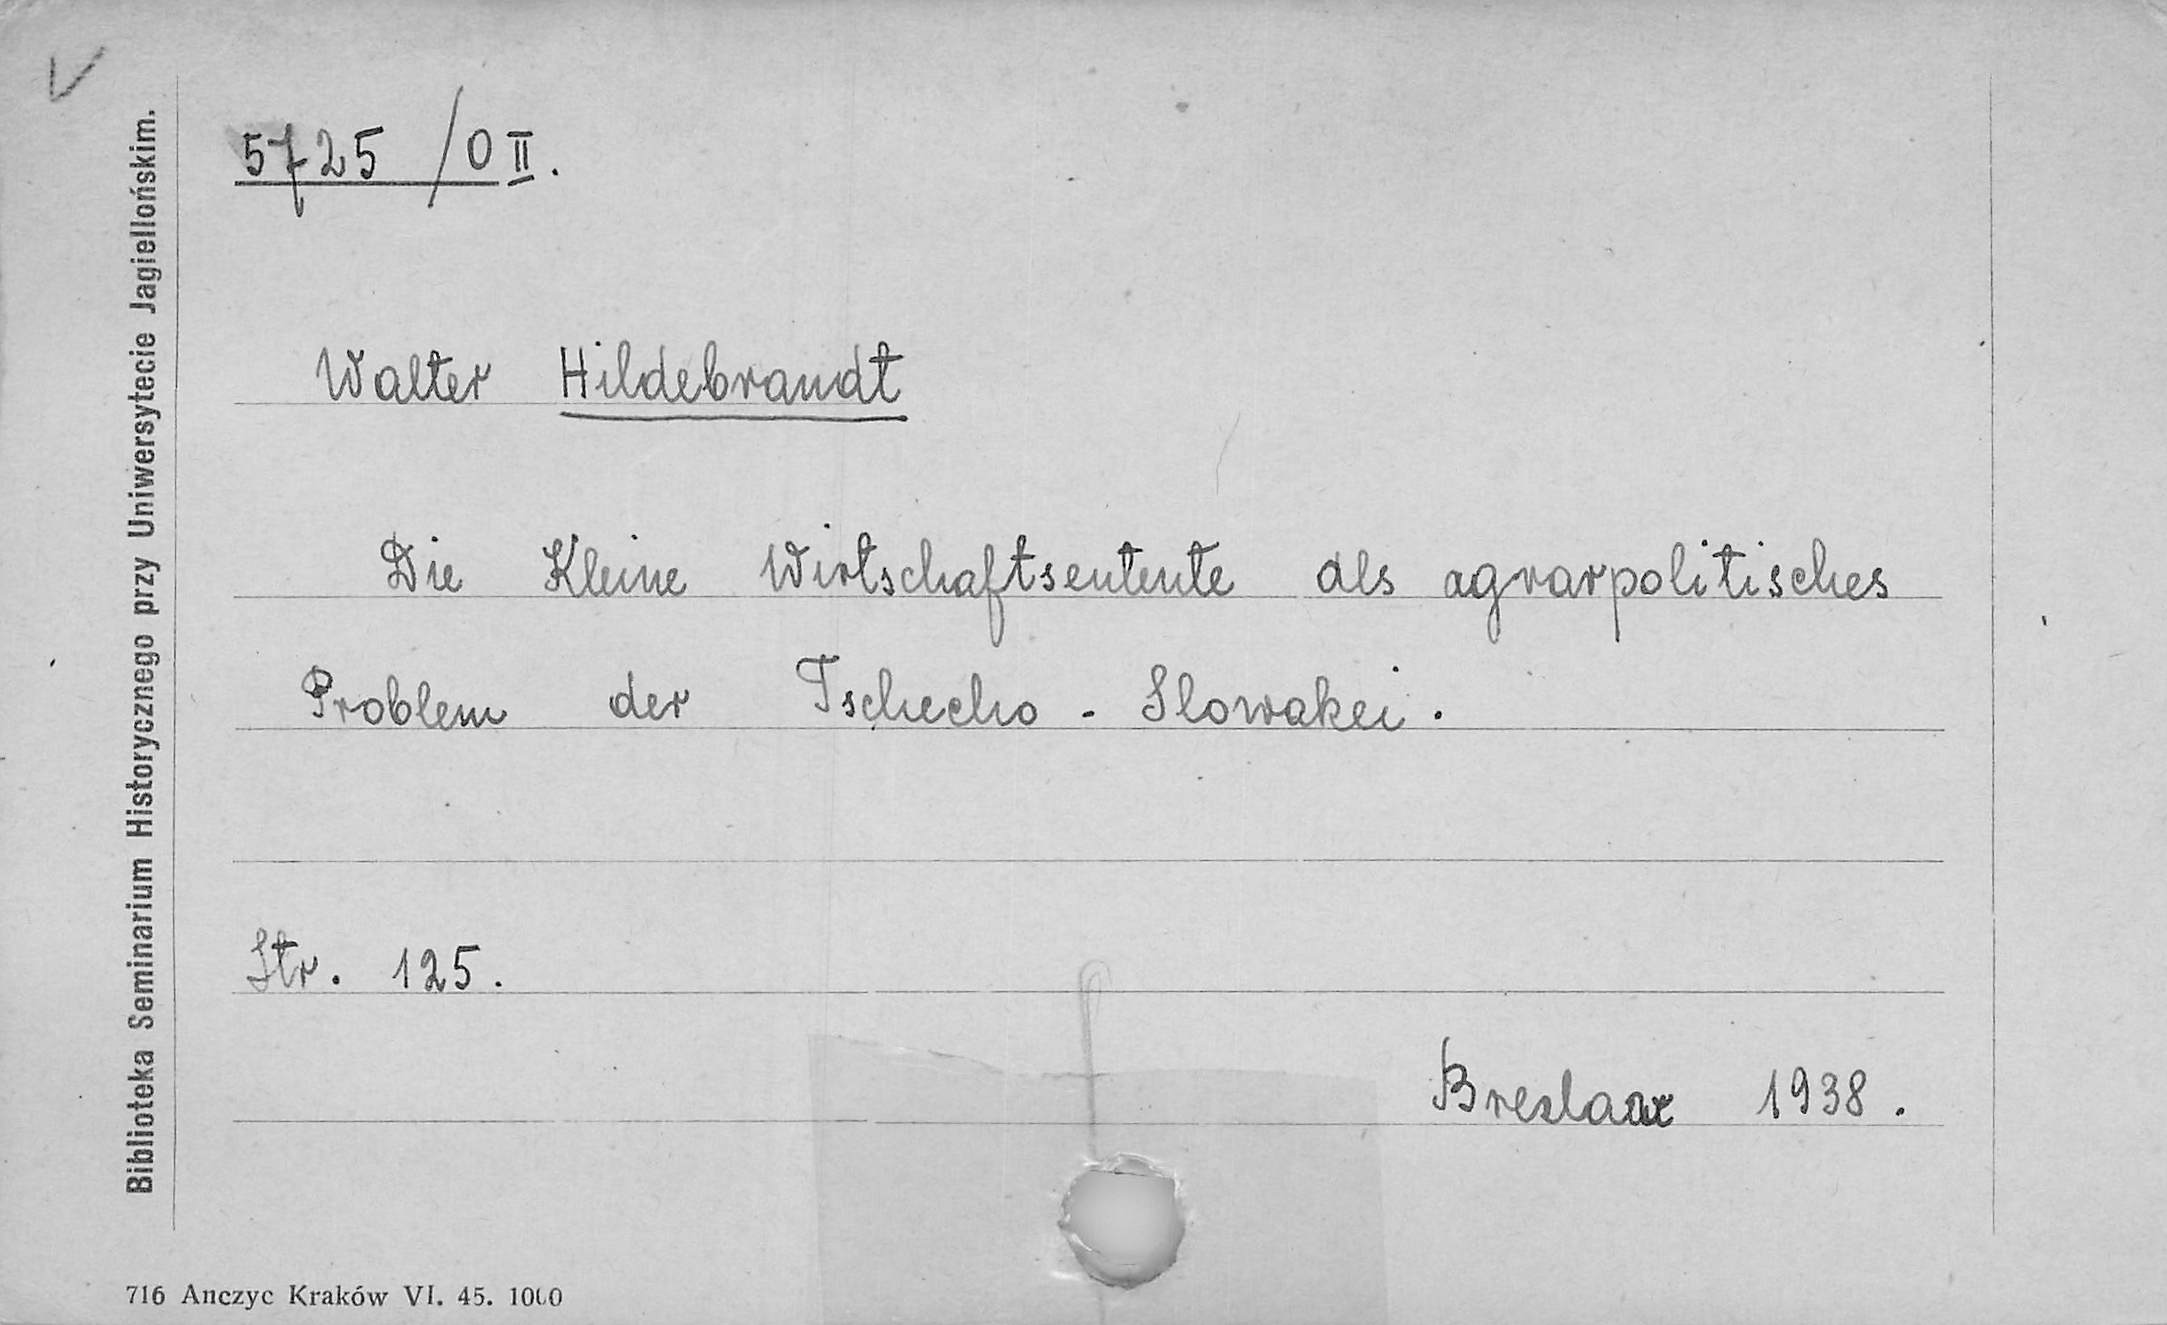 V
5725 / O II.
Walter Hildebrandt
Die Kleine Wirtschaftsentente als agrarpolitisches
Problem der Tschecho - Slowakei.
Str. 125.
Breslau 1938.
Biblioteka Seminarium Historycznego przy Uniwersytecie Jagiellońskim.
716 Anczyc Kraków VI. 45. 1000